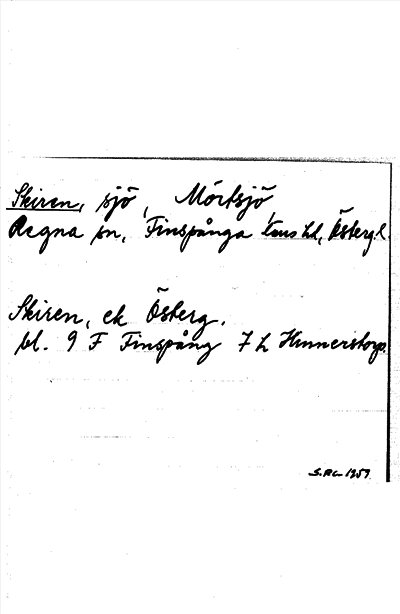 Skiren, sjö, Mörtsjö,
Regna sn, Finspånga läns hd, Östergl.
Skiren, ek Österg.
bl. 9 F Finspång 7 h Hunnerstorp
1959